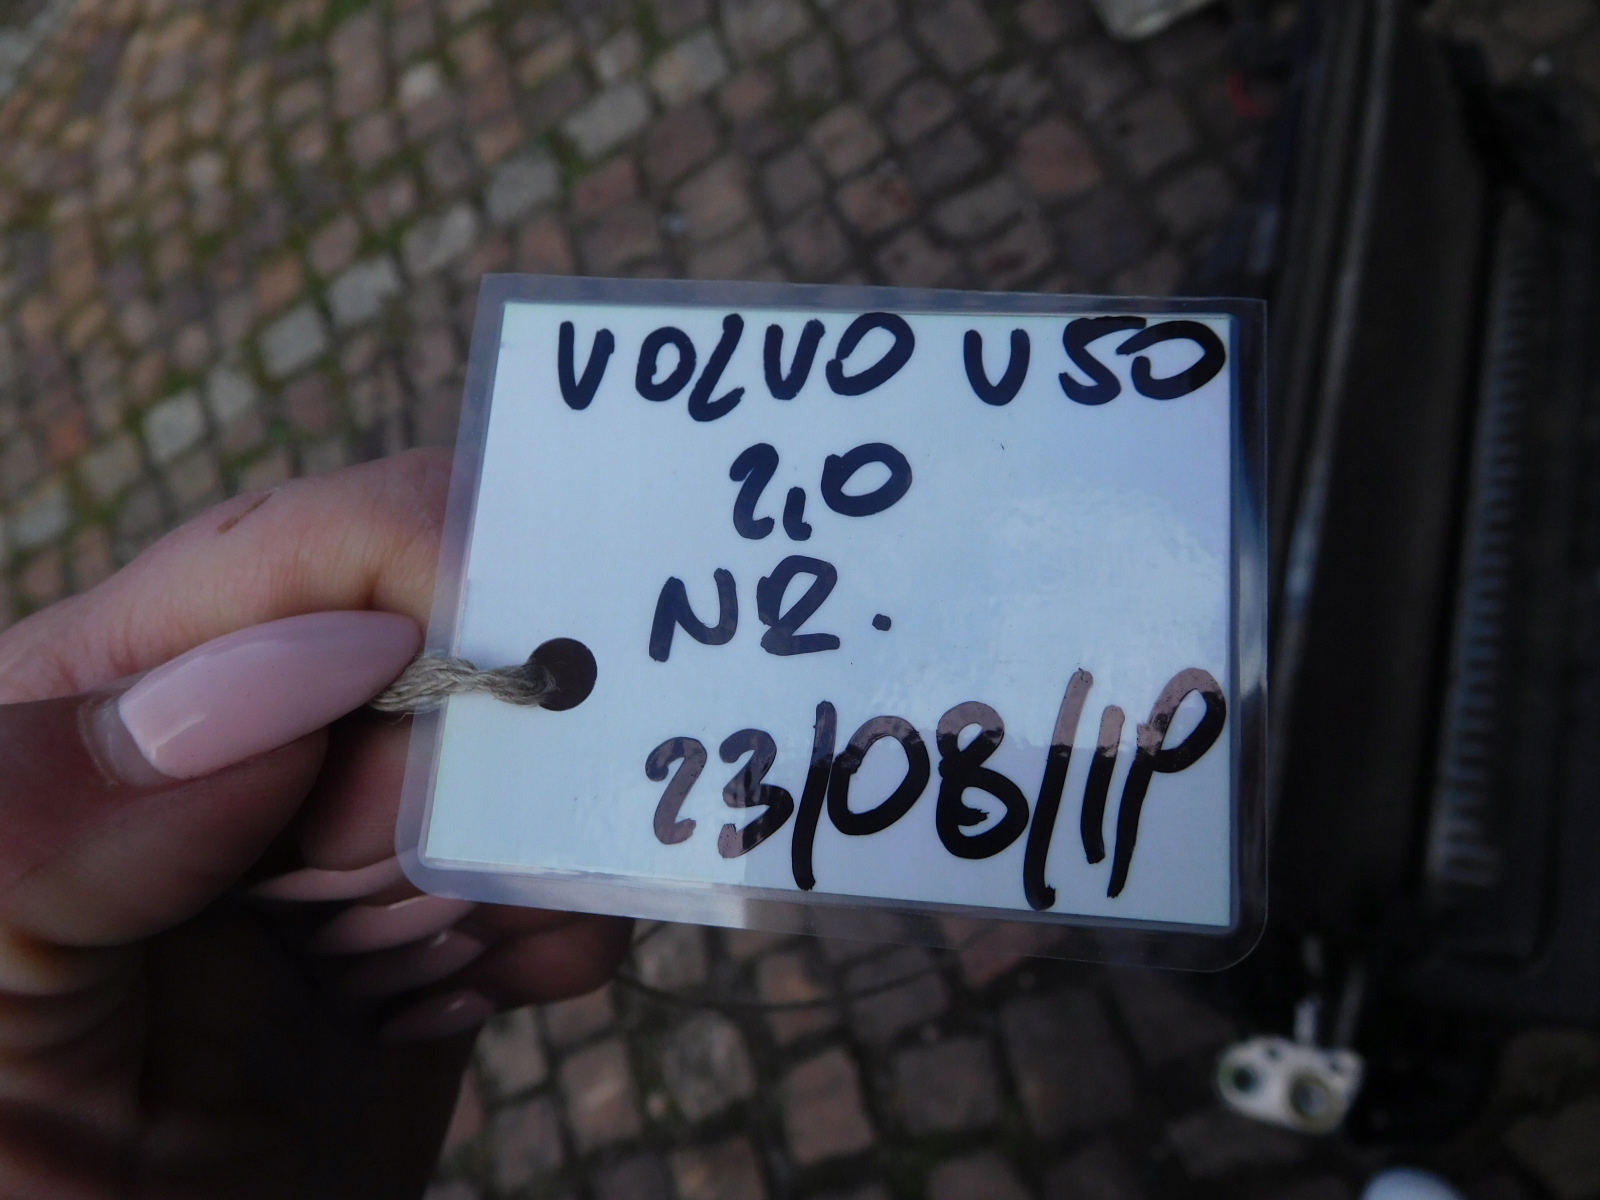 VOLVO V50
2,0
NR.
23/08/1P